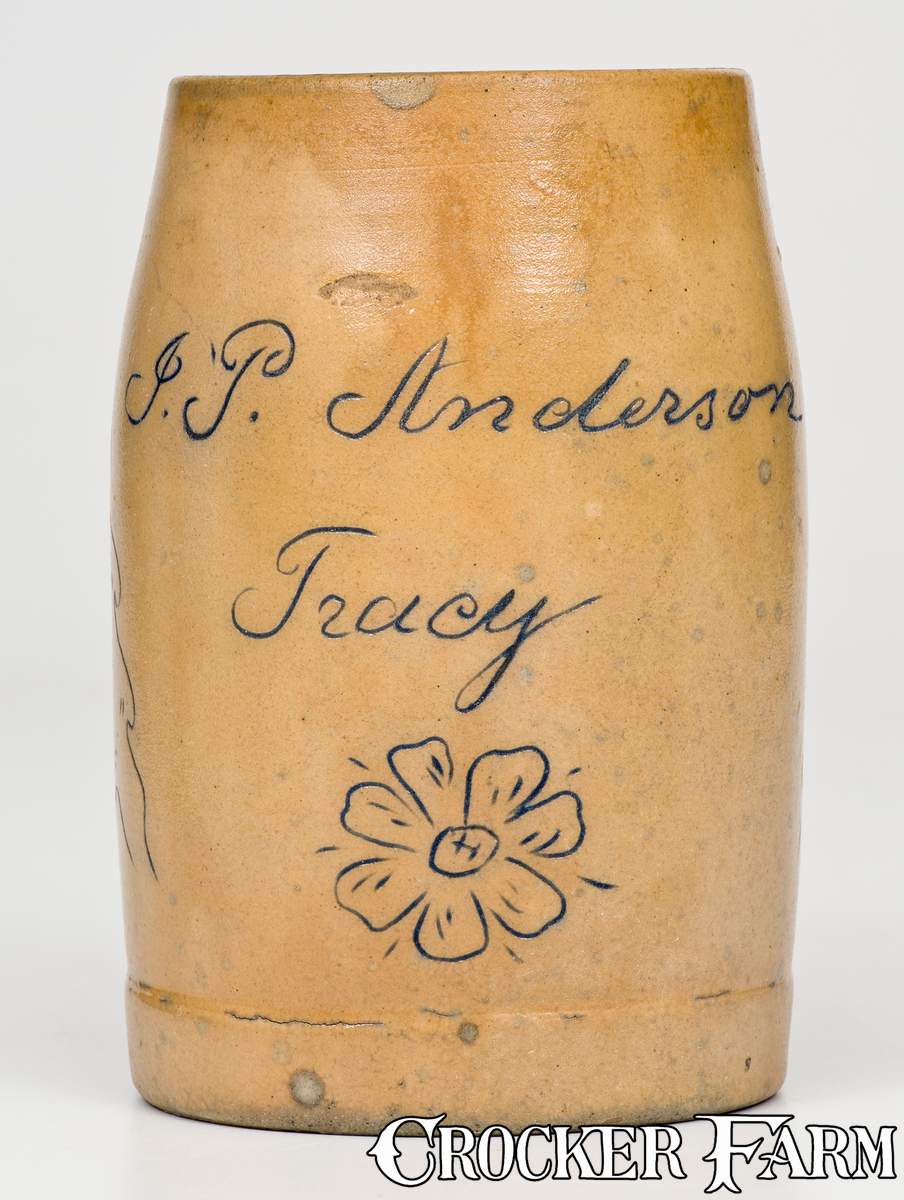 J. P. Anderson
Tracy
CROCKER FARM